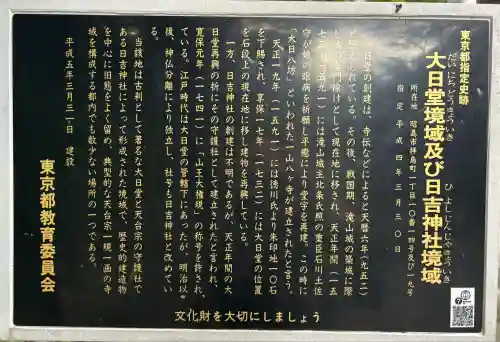 東京都指定史跡
だいにちどうきょういき
大日堂境域及び日吉神社境域
ひよしじんじゃきょういき
所在地 昭島市拝島町一丁目一〇番一四号及び一九号
指定 平成四年三月三〇日
大日堂の創建は、寺伝などによると天暦六年(九五二)
と伝えられている。その後、戦国期、滝山城の築城に際
し鬼門除けとして現在地に移され、天正年間(一五
七三〜一五九一)には滝山城主北条氏照の重臣石川土佐
守が娘の眼病を祈願し平癒により堂宇を再建。この時に
「大日八坊」といわれた一山八ヶ寺が建立されたと言う。
天正一九年(一五九一)には徳川氏より朱印地一〇石
を下賜され、享保一七年(一七三二)には大日堂の位置
を石段上の現在地に移し建物を再興している。
一方、日吉神社の創建は不明であるが、天正年間の大
日堂再興の折にその守護社として建立されたと言われ、
寛保元年(一七四一)に「山王大権現」の称号を許され
ている。江戸時代は大日堂の管轄下にあったが、明治以
後、神仏分離により独立し、社号も日吉神社と改めてい
る。
当該地は古刹として著名な大日堂と天台宗の守護社で
ある日吉神社によって形成された境域で、歴史的建造物
を中心に旧態をよく留め、典型的な天台宗一規一画の寺
域を構成する都内でも数少ない場所の一つである。
平成五年三月三一日 建設
東京都教育委員会
文化財を大切にしましょう